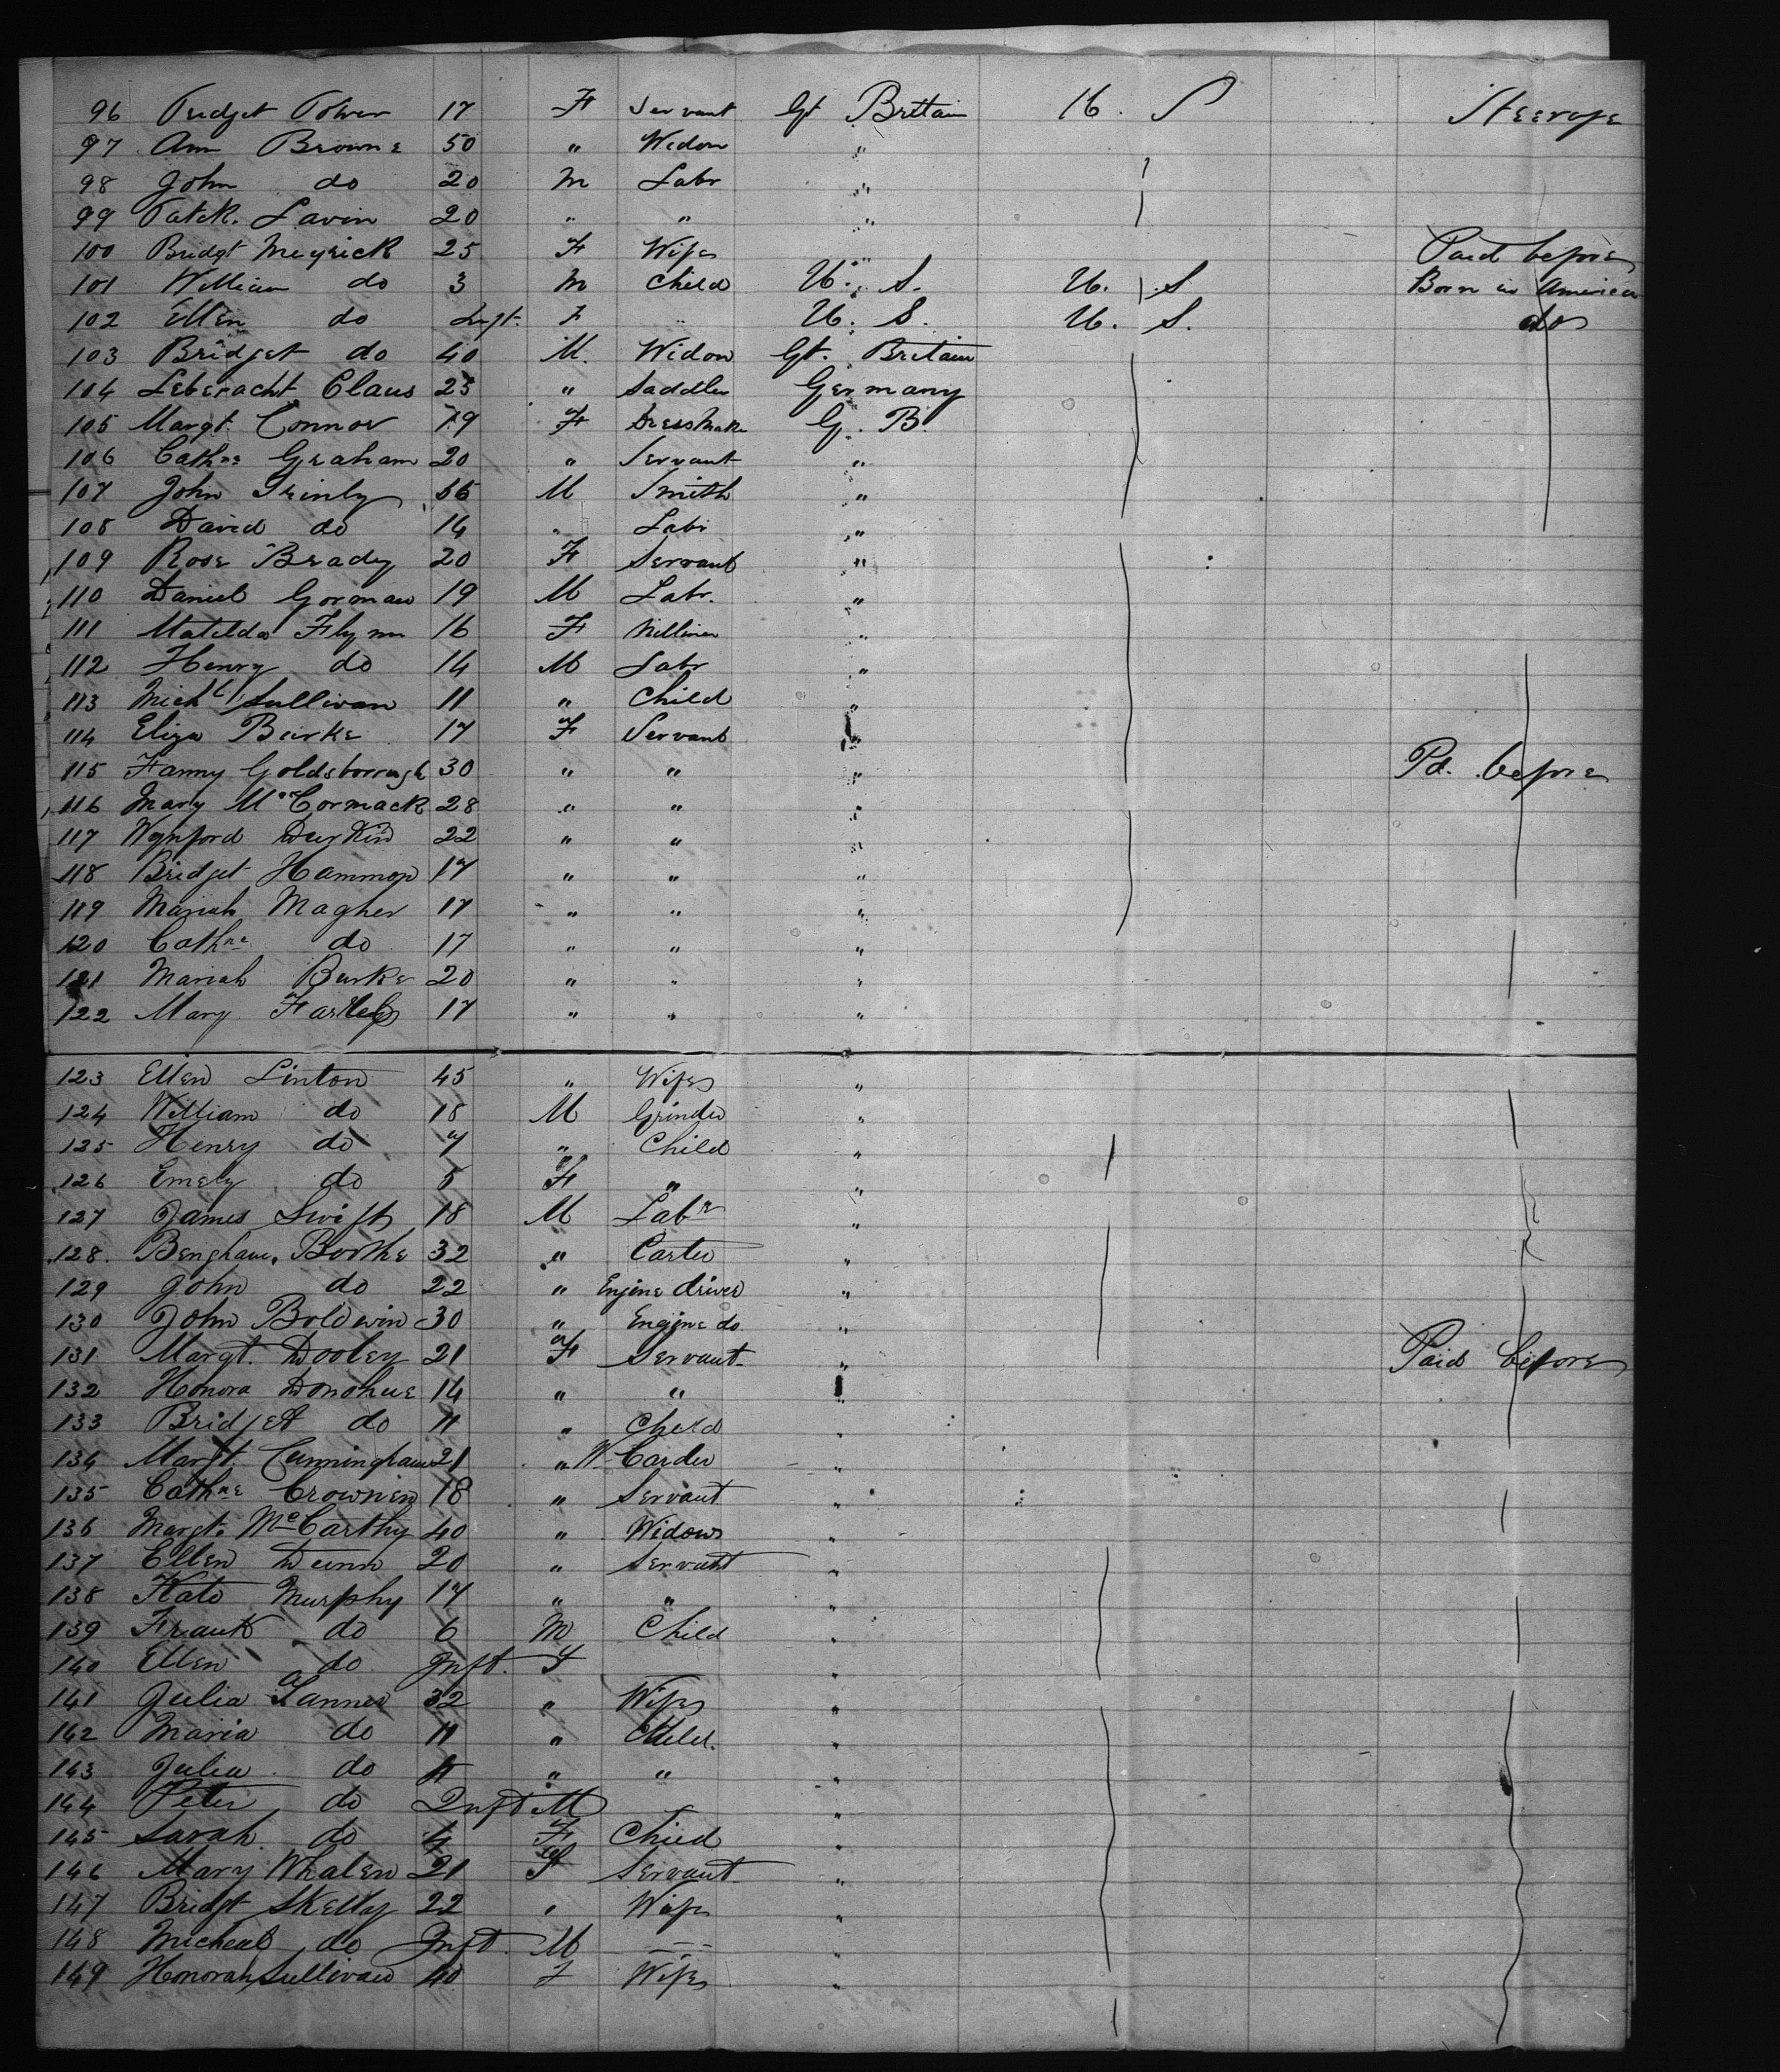 96 Bridget Power 17 F Servant Gt Brittain U. S Steerage
97 Ann Browne 50 " Widow "
98 John do 20 M Labr "
99 Patck. Lavin 20 " " "
100 Bridgt Meyrick 25 F Wife " Paid before
101 William do 3 M Child U. S. U. S Born in America
102 Ellen do Inft. F U. S. U. S. do
103 Bridget do 40 M. Widow Gt. Britain
104 Leberacht Claus 25 " Saddler Germany
105 Margt. Connor 19 F Dress Make G. B.
106 Cathne Graham 20 " Servant "
107 John 56 M Smith "
108 David do 14 " Labr "
109 Rose Brady 20 F Servant "
110 Daniel Gorman 19 M Labr. "
111 Matilda Flynn 16 F Milliner "
112 Henry do 14 M Labr "
113 Michl Sullivan 11 " Child "
114 Eliza Burke 17 F Servant "
115 Fanny Goldsborrough 30 " " " Pd. before
116 Mary McCormack 28 " " "
117 Wynford Durkin 22 " " "
118 Bridget Hammon 17 " " "
119 Mariah Magher 17 " " "
120 Cathne do 17 " " "
121 Mariah Burke 20 " " "
122 Mary Farley 17 " " "
123 Ellen Linton 45 " Wife "
124 William do 18 M Grinder "
125 Henry do 7 " Child "
126 Emely do 5 F " "
127 James Swift 18 M Labr "
128. Bengham. Boothe 32 " Carter "
129 John do 22 " Engine driver "
130 John Boldwin 30 " Engine do "
131 Margt. Dooley 21 F Servant " Paid before
132 Honora Donohue 14 " " "
133 Bridget do 11 " Child "
134 Margt. Cunningham 21 " W Carder "
135 Cathne Crownen 18 " Servant "
136 Margt. McCarthy 40 " Widow "
137 Ellen Dunn 20 " Servant "
138 Kate Murphy 17 " " "
139 Frank do 6 M Child "
140 Ellen do Inft. F "
141 Julia Tanner 32 " Wife "
142 Maria do 11 " Child. "
143 Julia do " " "
144 Peter do Inft M "
145 Sarah do 4 F Child "
146 Mary Whalen 21 F Servant "
147 Bridgt Skelly 22 " Wife "
148 Micheal do Inft. M "
149 Honorah Sullivan 40 F Wife "